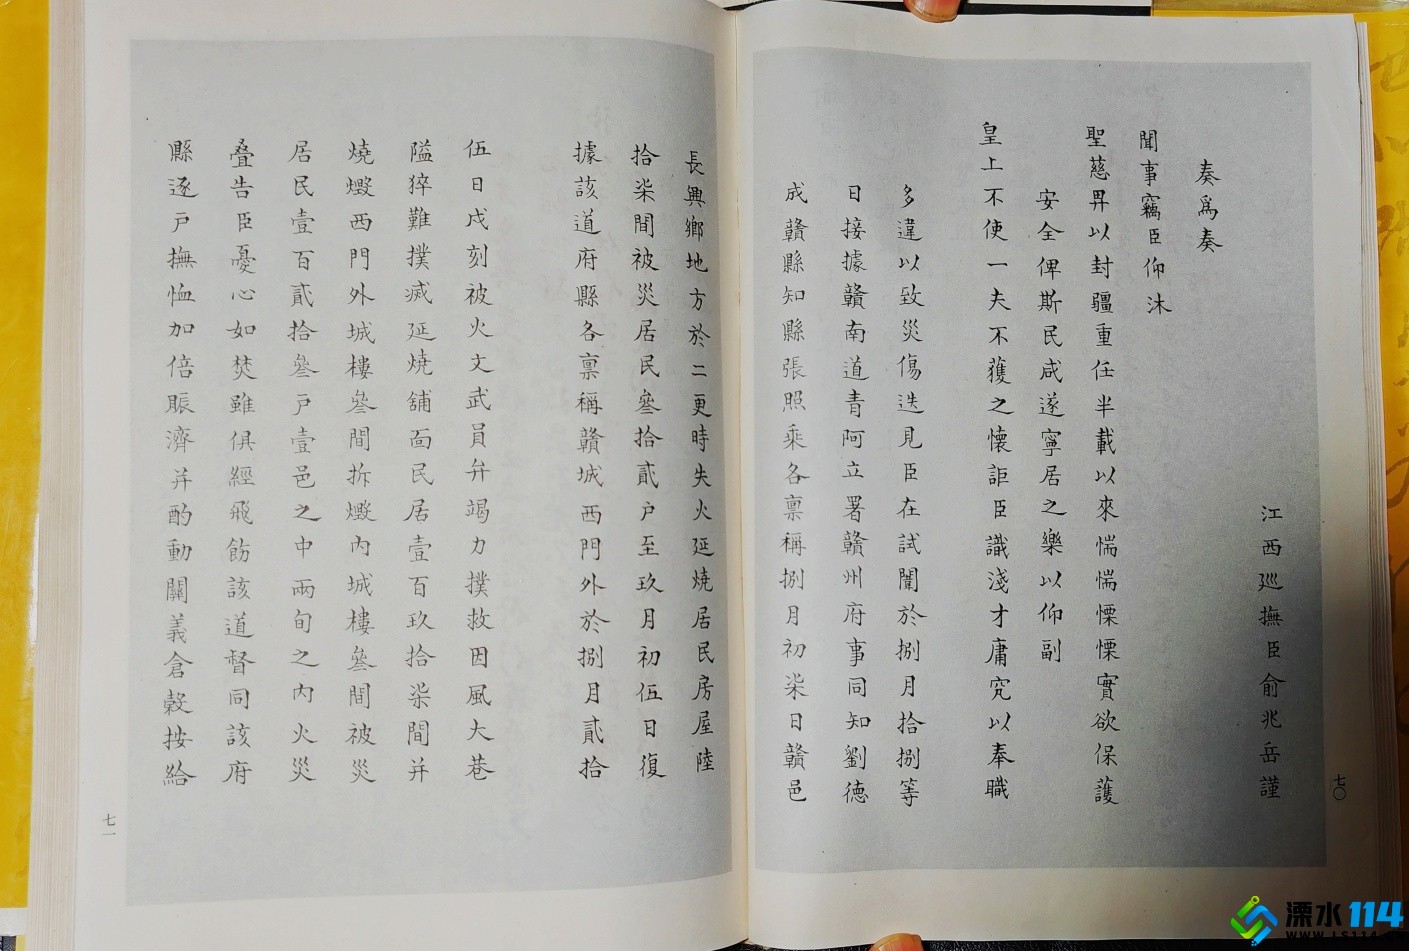 江西廵撫臣俞兆岳謹
奏爲奏
聞事竊臣仰沐
聖慈畀以封疆重任半載以來惴惴慄慄實欲保護
安全俾斯民咸遂寧居之樂以仰副
皇上不使一夫不獲之懷詎臣識淺才庸究以奉職
多違以致災傷迭見臣在試闈於捌月拾捌等
日接據贛南道青阿立署贛州府事同知劉德
成贛縣知縣張照乘各禀稱捌月初柒日贛邑
七〇
長興鄉地方於二更時失火延燒居民房屋陸
拾柒間被災居民叄拾貳户至玖月初伍日復
據該道府縣各禀稱贛城西門外於捌月貳拾
伍日戌刻被火文武員弁竭力撲救因風大巷
隘猝難撲滅延燒舖面民居壹百玖拾柒間并
燒燬西門外城樓叄間拆燬內城樓叄間被災
居民壹百貳拾叄户壹邑之中兩旬之內火災
叠告臣憂心如焚雖俱經飛飭該道督同該府
縣逐户撫恤加倍賑濟并酌動關義倉穀按給
七一
溧水114
WWW.LS114.CN